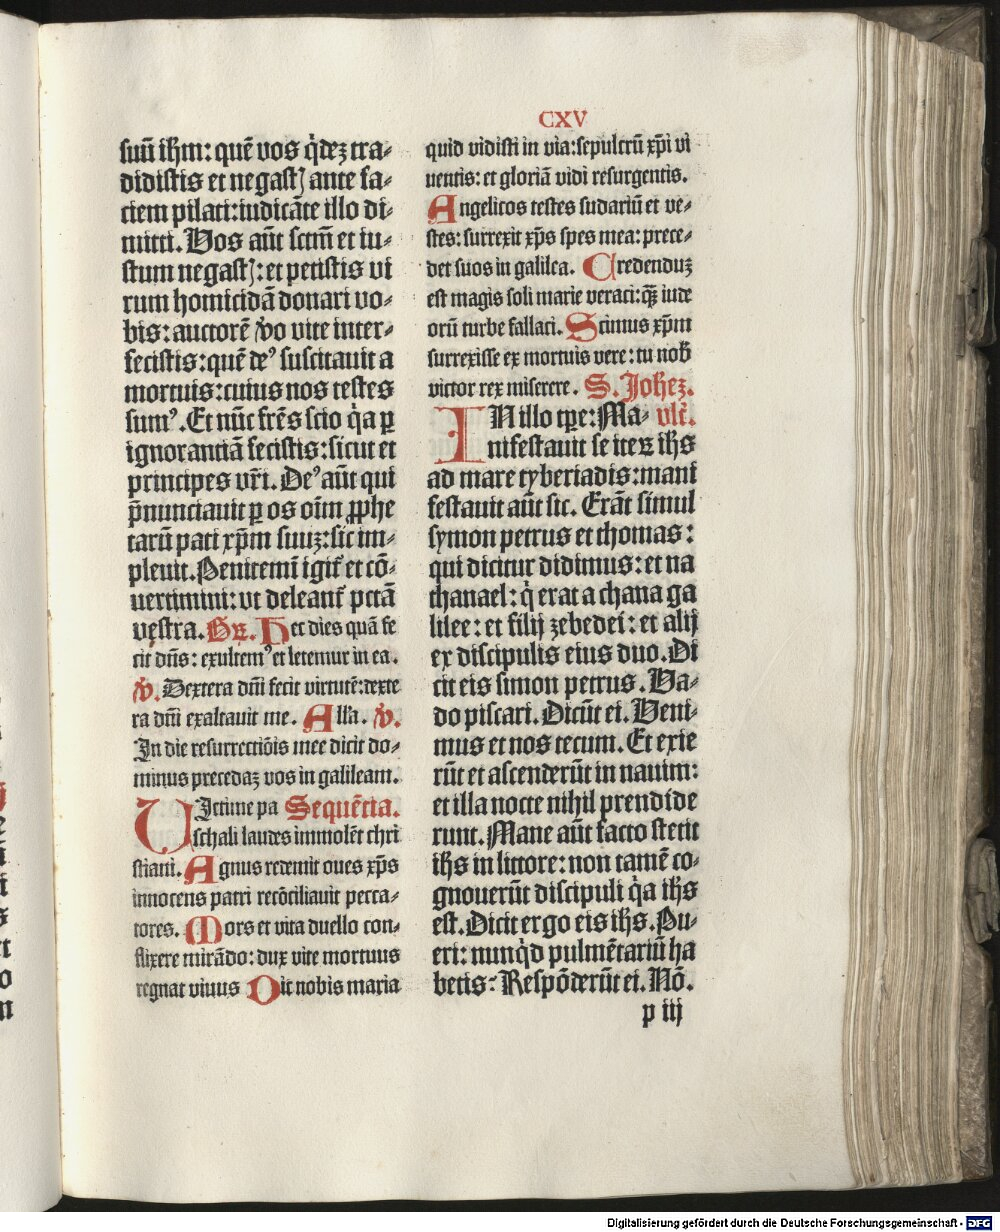 CXV
suū ihm: quē vos q̇dez tra⸗
didistis et negastꝭ ante fa⸗
ciem pilati: iudicāte illo di⸗
mitti. Vos aūt sctm̄ et iu⸗
stum negastꝭ: et petistis vi
rum homicidā donari vo⸗
bis: auctorē v̊o vite inter⸗
fecistis: quē deꝰ suscitauit a
mortuis: cuius nos testes
sumꝰ. Et nūc frēs scio q̇a ꝑ
ignorantiā fecistis: sicut et
principes vr̄i. Deꝰ aūt qui
p̄nunciauit ꝑ os oīm ꝓphe
tarū pati xp̄m suuz: sic im⸗
pleuit. Penitemī igit᷑ et cō⸗
uertimini: vt deleant᷑ pctā
vestra. Gꝛ. Hec dies quā fe
cit dn̄s: exultemꝰ et letemur in ea.
v̊. Dextera dn̄i fecit virtutē: dexte
ra dn̄i exaltauit me. Alla. v̊.
In die resurrectiōis mee dicit do⸗
minus precedaz vos in galileam.
VIctime pa Sequētia.
schali laudes immolēt chri
stiani. Agnus redemit oues xp̄s
innocens patri recōciliauit pecca⸗
tores. Mors et vita duello con⸗
flixere mirādo: dux vite mortuus
regnat viuus Dic nobis maria
quid vidisti in via: sepulcrū xp̄i vi
uentis: et gloriā vidi resurgentis.
Angelicos testes sudariū et ve⸗
stes: surrexit xp̄s spes mea: prece⸗
det suos in galilea. Credenduz
est magis soli marie veraci: qꝫ iude
orū turbe fallaci. Scimus xp̄m
surrexisse ex mortuis vere: tu nob̄
victor rex miserere. S. Johez.
IN illo tꝑe: Ma⸗ vlt̄.
nifestauit se iteꝝ ihs
ad mare tyberiadis: mani
festauit aūt sic. Erāt simul
symon petrus et thomas:
qui dicitur didimus: et na
thanael: q̇ erat a chana ga
lilee: et filij zebedei: et alij
ex discipulis eius duo. Di
cit eis simon petrus. Va⸗
do piscari. Dicūt ei. Veni⸗
mus et nos tecum. Et exie
rūt et ascenderūt in nauim:
et illa nocte nihil prendide
runt. Mane aūt facto stetit
ihs in littore: non tamē co⸗
gnouerūt discipuli q̇a ihs
est. Dicit ergo eis ihs. Pu⸗
eri: nunq̇d pulmētariū ha
betis? Respōderūt ei. Nō.
p iij
Digitalisierung gefördert durch die Deutsche Forschungsgemeinschaft - DFG